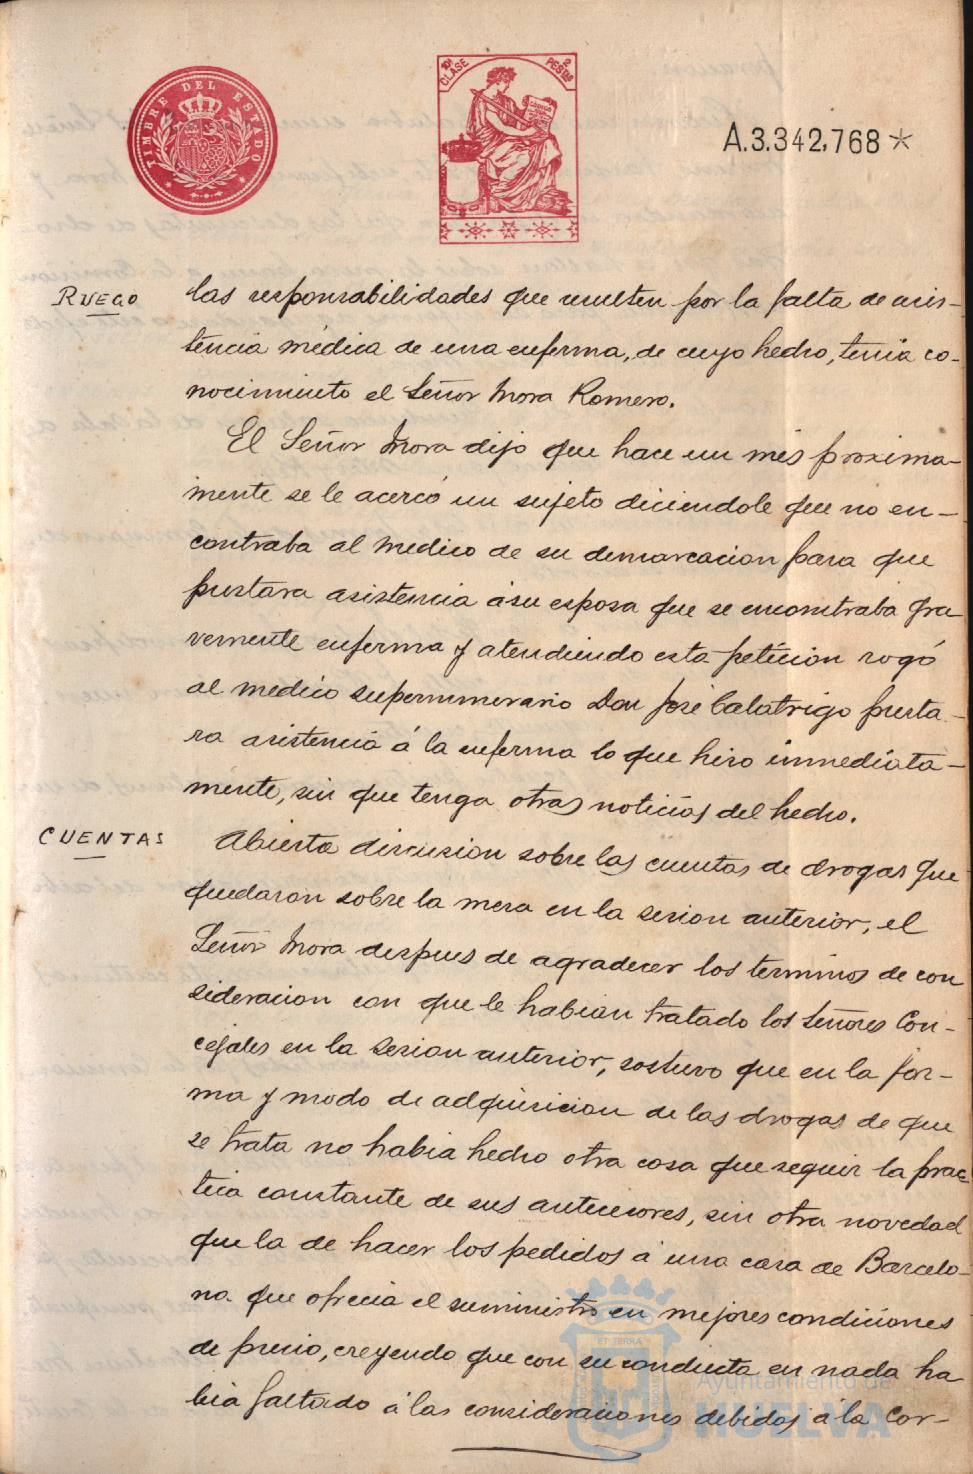 TIMBRE DEL ESTADO
10ª CLASE
2 PESETAS
A.3.342,768*
RUEGO
las responsabilidades que resulten por la falta de asis-
tencia médica de una enferma, de cuyo hecho, tenia co-
nocimiento el Señor Mora Romero.
El Señor Mora dijo que hace un mes proxima-
mente se le acercó un sujeto diciendole que no en-
contraba al medico de su demarcacion para que
prestara asistencia á su esposa que se encontraba gra
vemente enferma y atendiendo esta peticion rogó
al medico supernumerario Don José Calatrigo presta-
ra asistencia á la enferma lo que hizo inmediata-
mente, sin que tenga otras noticias del hecho.
CUENTAS
Abierta discusion sobre las cuentas de drogas que
quedaron sobre la mesa en la sesion anterior, el
Señor Mora despues de agradecer los terminos de con
sideracion con que le habian tratado los Señores Con-
cejales en la sesion anterior, sostuvo que en la for-
ma y modo de adquisicion de las drogas de que
se trata no habia hecho otra cosa que seguir la prac-
tica constante de sus antecesores, sin otra novedad
que la de hacer los pedidos á una casa de Barcelo-
na que ofrecia el suministro en mejores condiciones
de precio, creyendo que con su conducta en nada ha
bia faltado á las consideraciones debidas á la Cor-
Ayuntamiento de
HUELVA